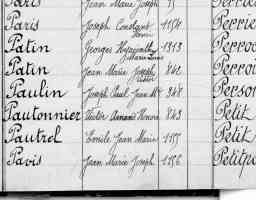 Paris Jean Marie Joseph 75 Perrie
Paris Joseph Constant 1154 Perrie
Patin Georges Hyacinthe 1313 Perro
Marie Louis
Patin Jean Marie Joseph 841 Perroi
Paulin Joseph Paul Jean Mie 948 Person
Pautonnier Victor Amand Honoré 843 Petit
Pautrel Emile Jean Marie 1155 Petit
Pavis Jean Marie Joseph 1156 Petitpa